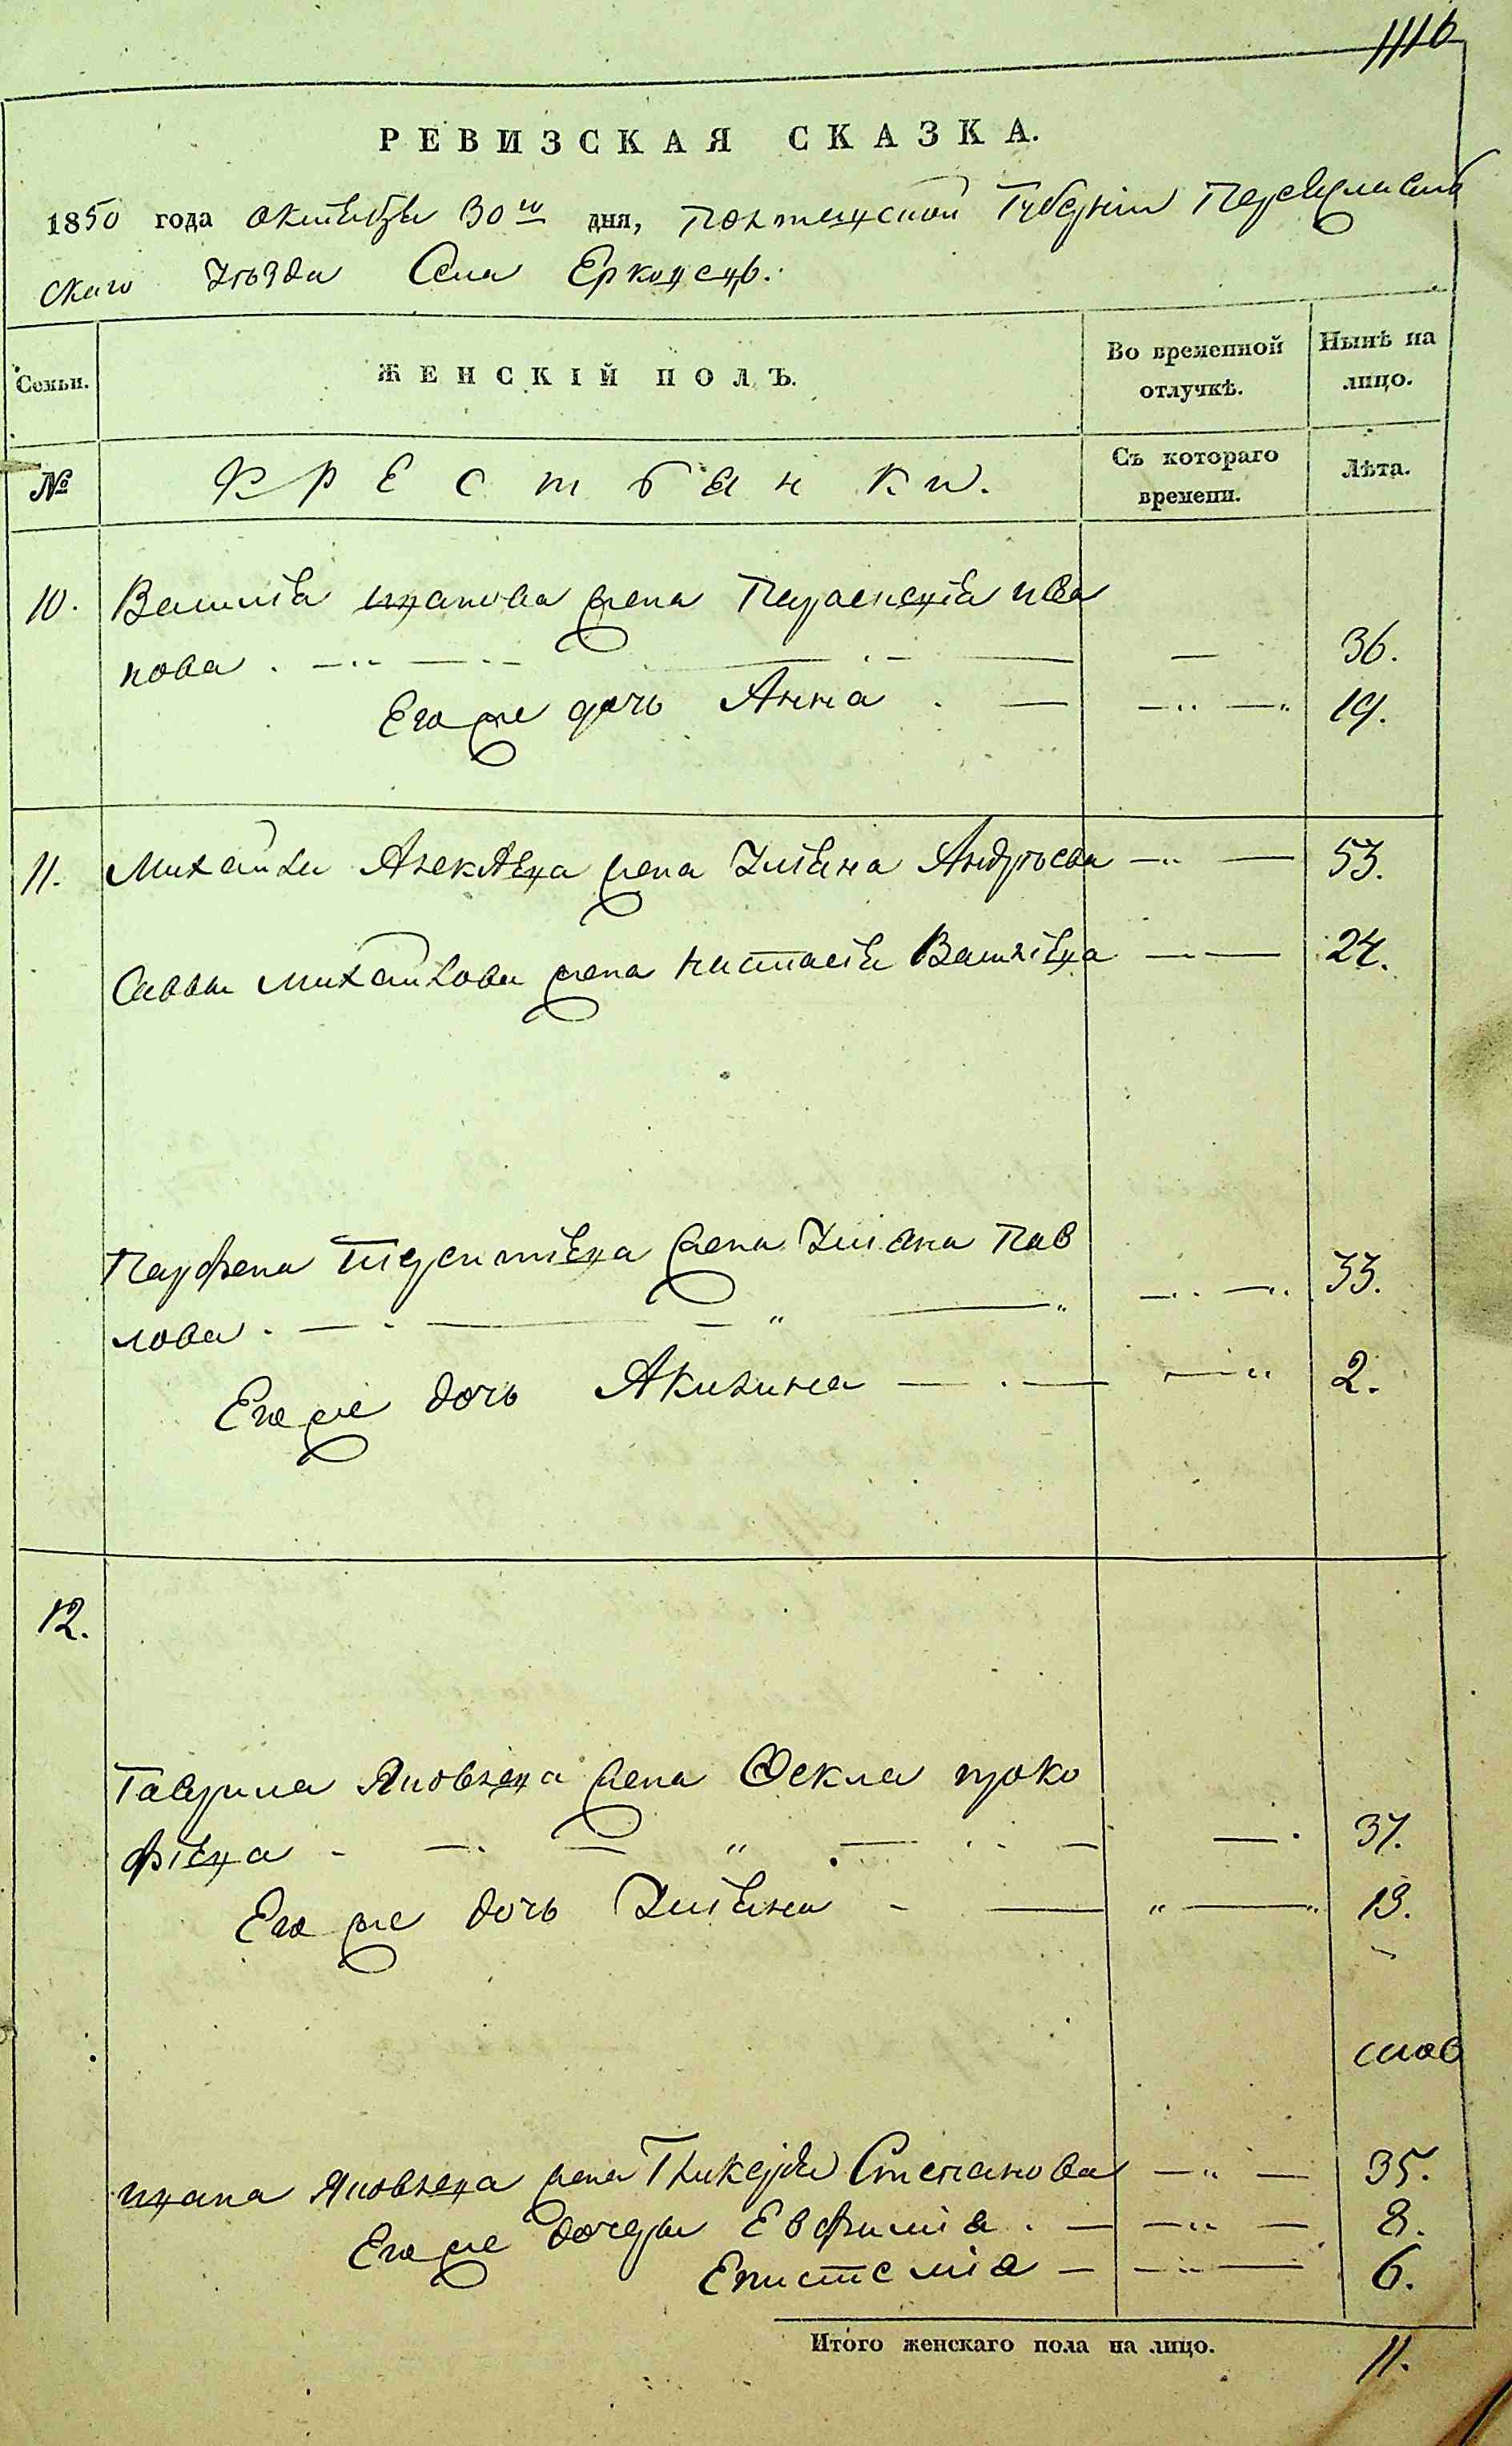 РЕВИЗСКАЯ СКАЗКА.
1850 года октября 30го дня, Полтавской Губерніи Переяслав
скаго Уѣзда Села Ерковець.
Семьи.
ЖЕНСКІЙ ПОЛЪ.
Во временной отлучкѣ.
Нынѣ на лицо.
№
Крестьянки.
Съ котораго времени.
Лѣта.
10. Василія Иванова жена Параскевія Ива
нова . — — — 36.
Его же дочь Анна . — — 19.
11. Михайла Алексѣева жена Ульяна Андрѣева — — 53.
Саввы Михайлова жена Настасія Васильева — — 24.
Парфена Терентіева жена Ульяна Пав
лова . — — — 33.
Его же дочь Акилина — — 2.
12.
Гаврила Яковлева жена Ѳекла Проко
фіева — — — 37.
Его же дочь Ульяна — — 13.
Ивана Яковлева жена Гликерія Степанова — — 35.
Его же дочери Евфимія . — — 8.
Епистемія — — 6.
Итого женскаго пола на лицо. 11.